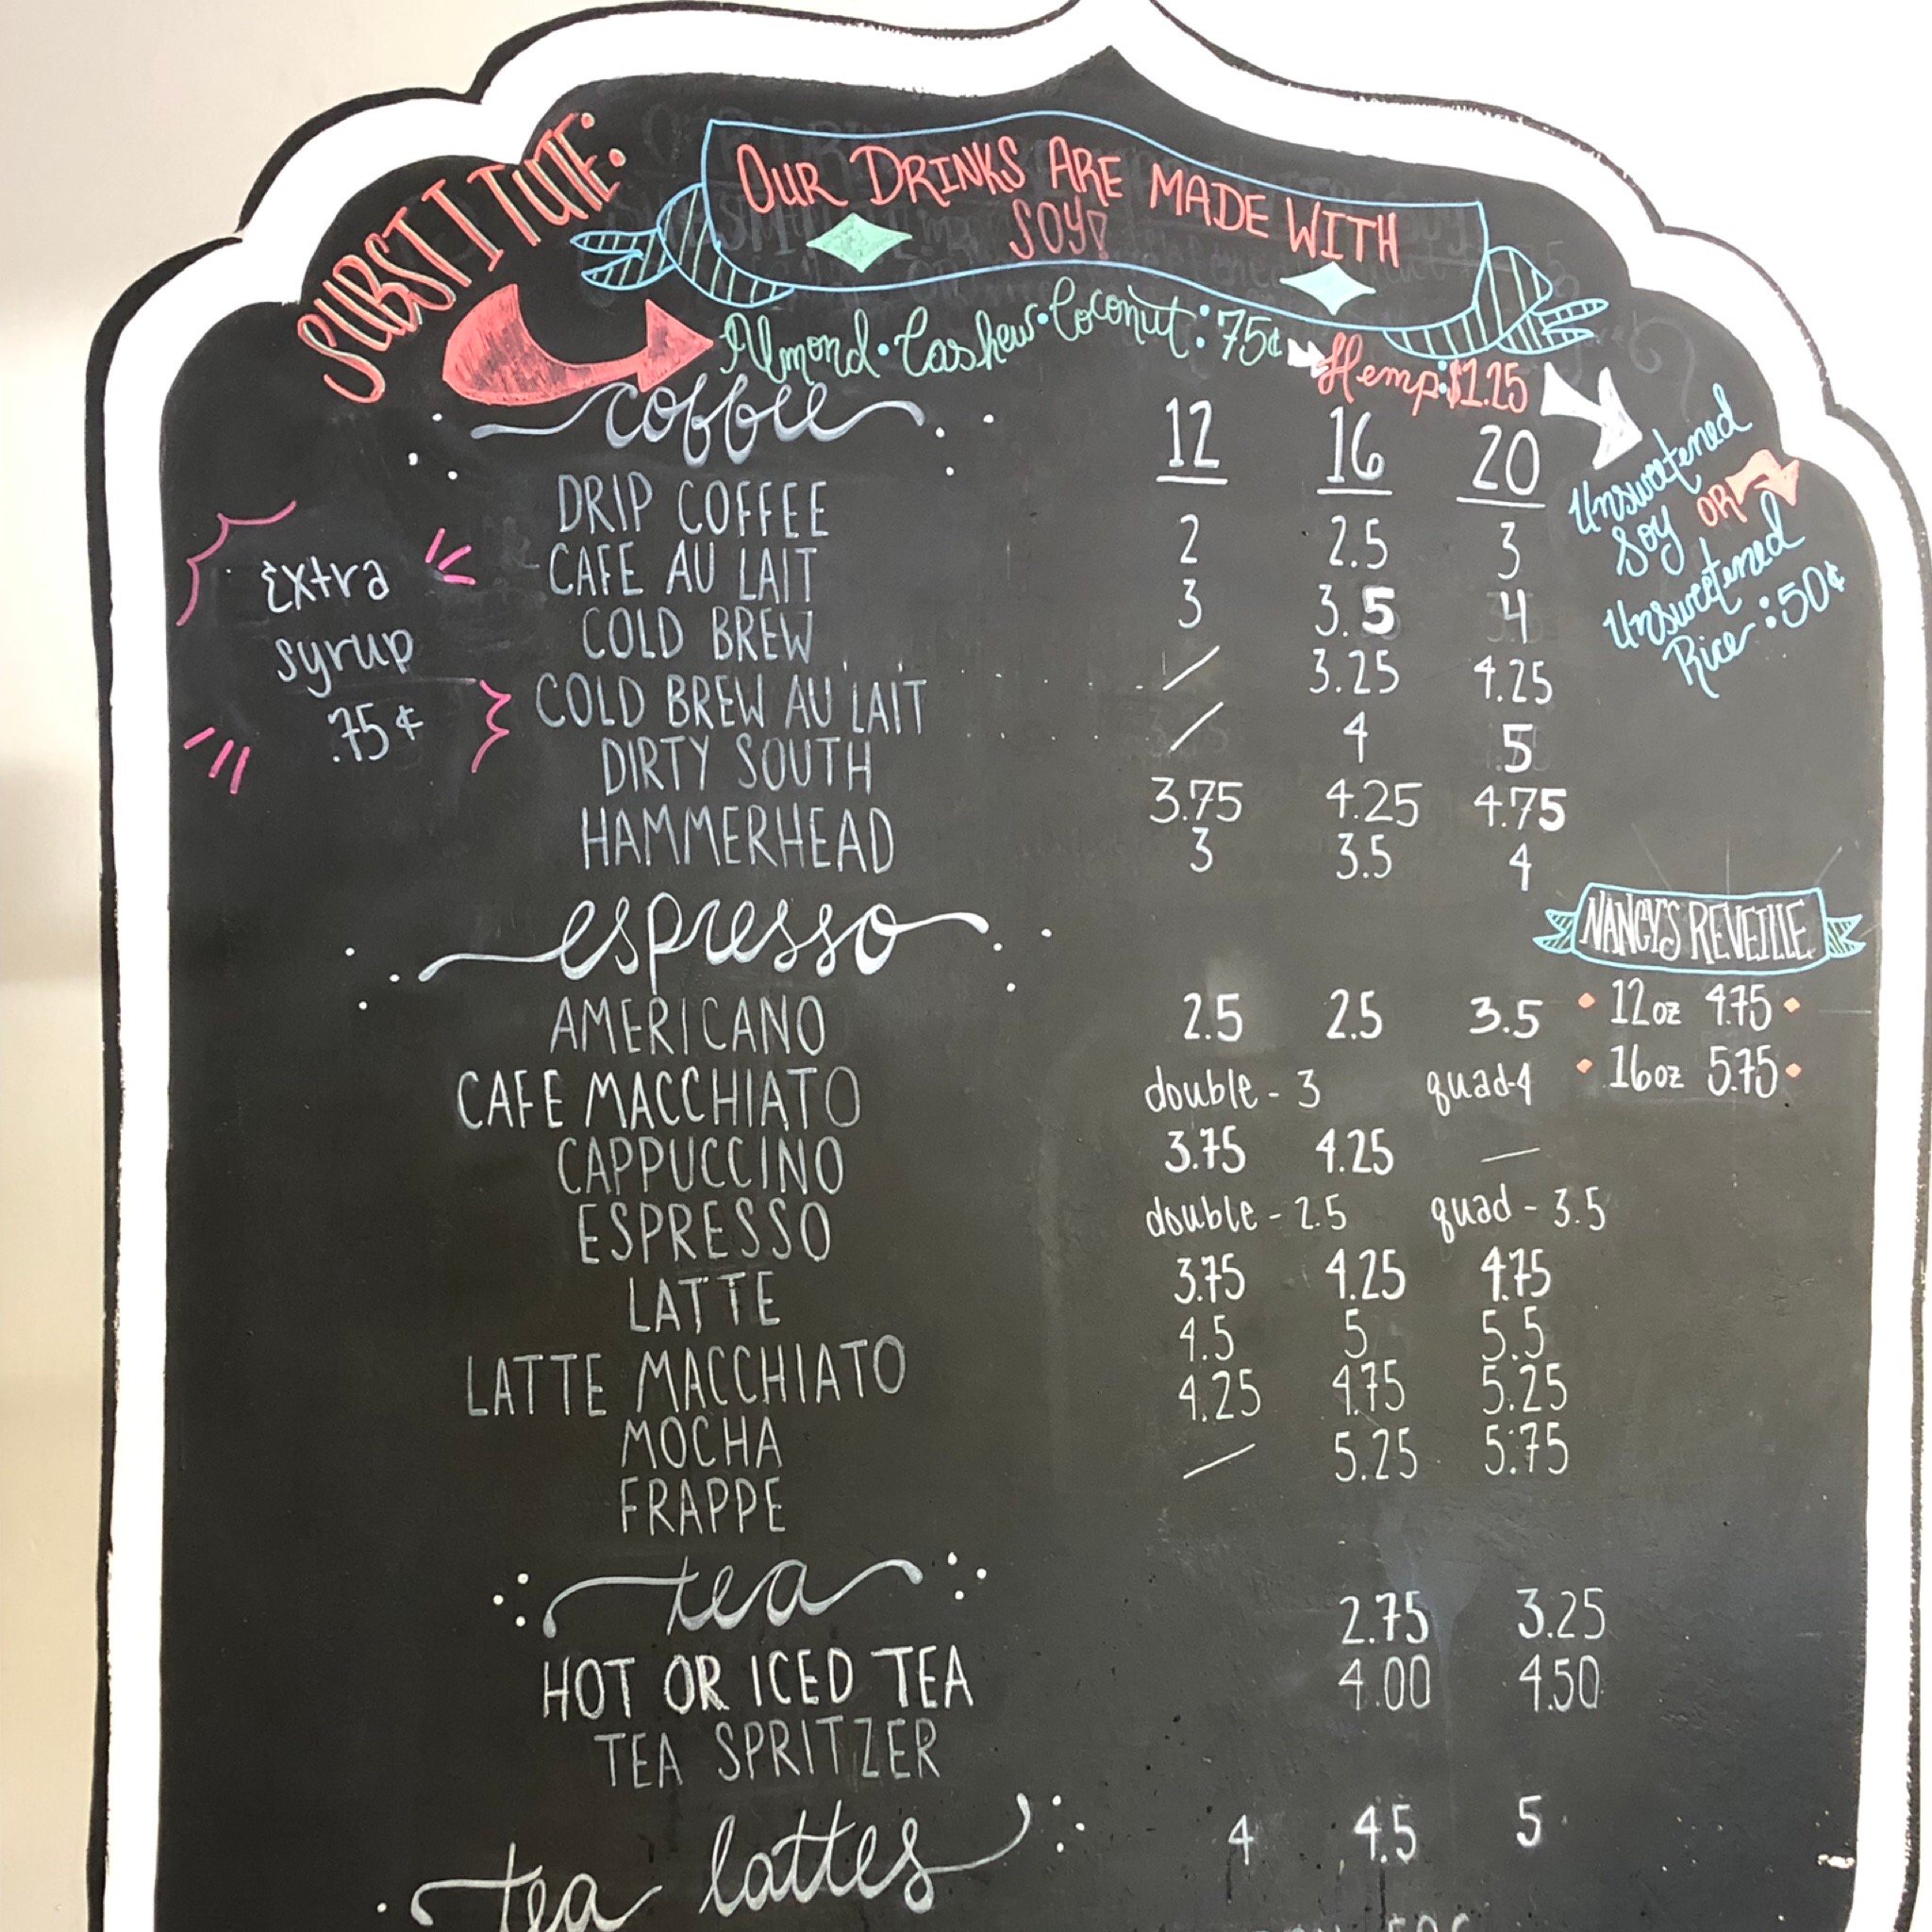 SUBSTITUTE:
OUR DRINKS ARE MADE WITH
SOY!
Almond • Cashew • Coconut : 75¢
Hemp: $1.25
Unsweetened
Soy OR
Unsweetened
Rice : 50¢
Extra
syrup
.75¢
coffee 12 16 20
DRIP COFFEE 2 2.5 3
CAFE AU LAIT 3 3.5 4
COLD BREW / 3.25 4.25
COLD BREW AU LAIT / 4 5
DIRTY SOUTH 3.75 4.25 4.75
HAMMERHEAD 3 3.5 4
NANCY'S REVEILLE
12oz 4.75
16oz 5.75
espresso
AMERICANO 2.5 2.5 3.5
CAFE MACCHIATO double - 3 quad-4
CAPPUCCINO 3.75 4.25 —
ESPRESSO double - 2.5 quad - 3.5
LATTE 3.75 4.25 4.75
LATTE MACCHIATO 4.5 5 5.5
MOCHA 4.25 4.75 5.25
FRAPPE / 5.25 5.75
tea
HOT OR ICED TEA 2.75 3.25
TEA SPRITZER 4.00 4.50
tea lattes 4 4.5 5